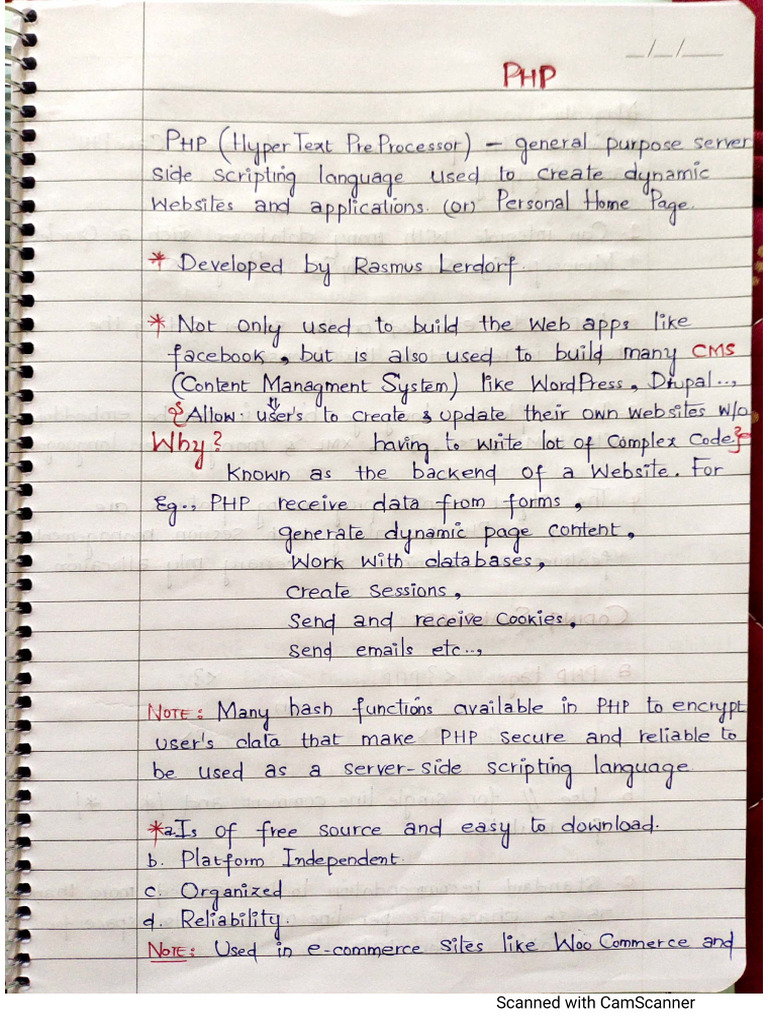 _/_/___
PHP
PHP (HyperText PreProcessor) - general purpose server
side scripting language used to create dynamic
websites and applications. (or) Personal Home Page.
* Developed by Rasmus Lerdorf.
* Not only used to build the web apps like
facebook, but is also used to build many CMS
(Content Managment System) like WordPress, Drupal..,
{Allow user's to create & update their own websites w/o
Why? having to write lot of Complex Code}
Known as the backend of a Website. For
Eg., PHP receive data from forms,
generate dynamic page content,
Work with databases,
create sessions,
Send and receive Cookies,
Send emails etc..,
NOTE: Many hash functions available in PHP to encrypt
user's data that make PHP secure and reliable to
be used as a server-side scripting language
*a. Is of free source and easy to download.
b. Platform Independent.
c. Organized
d. Reliability.
NOTE: Used in e-commerce sites like WooCommerce and
Scanned with CamScanner